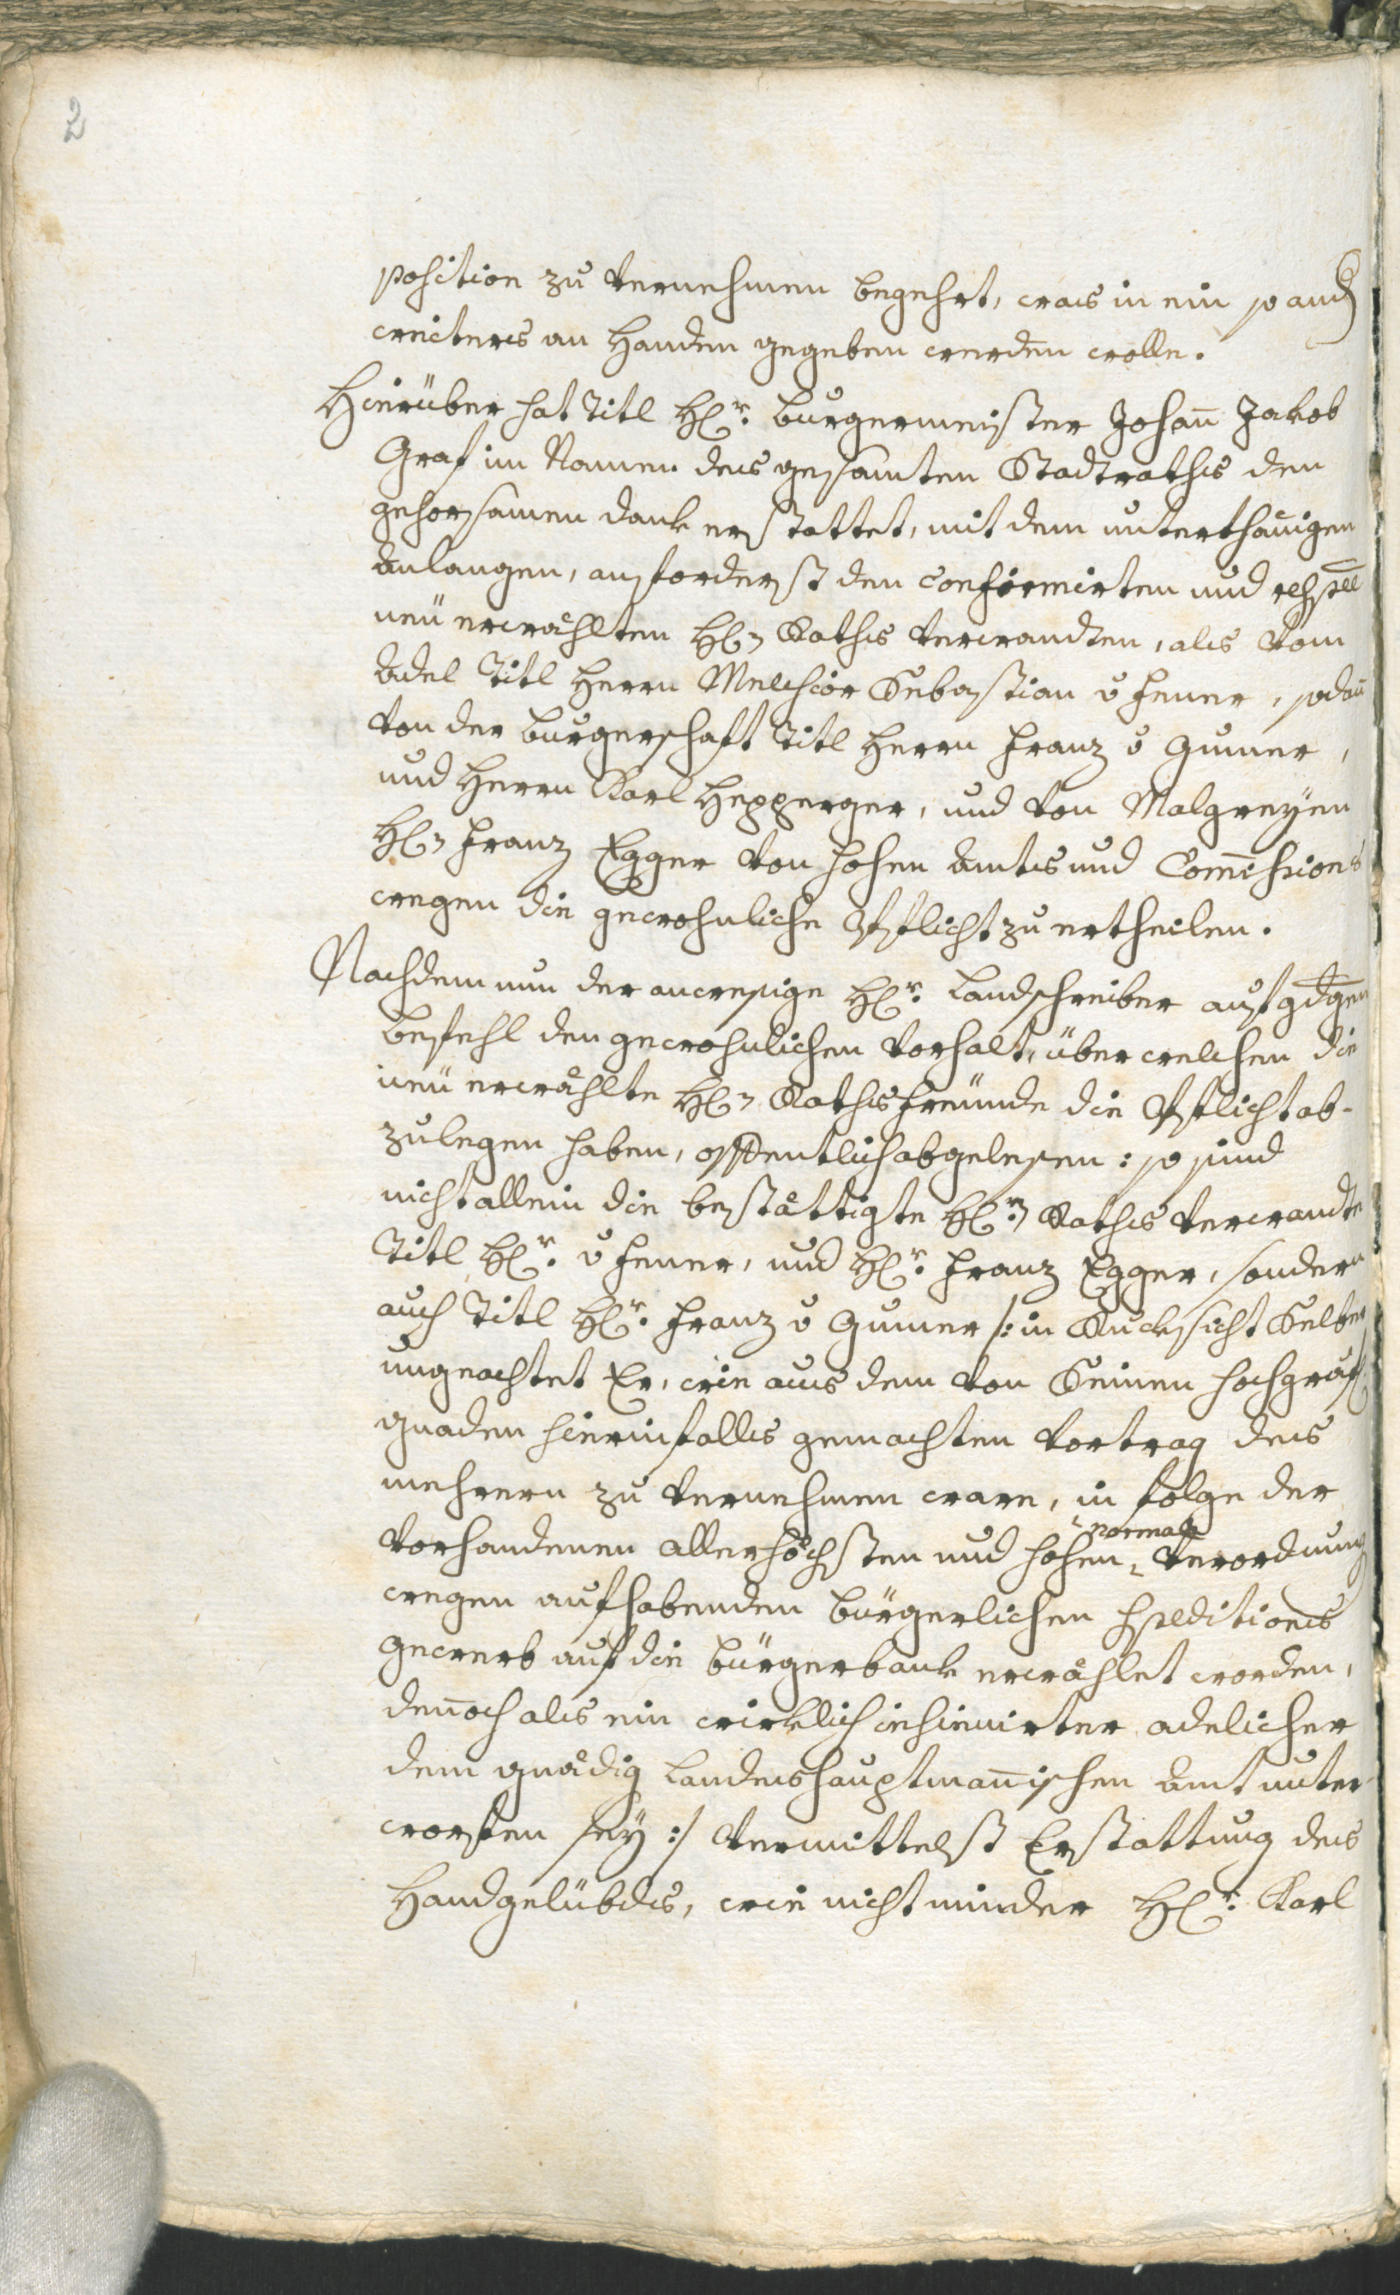 2
position zu vernehmen begehrt, was in ein so and
weiters an Handen gegeben werden wolle.
Hierüber hat Titl H̄r. Burgermeister Johan̄ Jakob
Graf im Namen des gesamten Stadtraths den
gehorsamen dank erstattet, mit dem unterthänigen
anlangen, anforderist den Confirmirten und resp̄ee
neu erwählten H̄n Raths verwandten, als vom
Adel Titl Herrn Melchior Sebastian v Hener, sodan̄
von der Burgerschaft Titl Herrn Franz v Gumer,
und Herrn Karl Hepperger, und von Malgreÿen
H̄n Franz Egger von hohen Amts und Com̄issions
wegen die gewohnliche Pflicht zu ertheilen.
Nachdem nun der anwesige H̄r. Landschreiber auf gd̄gen
Befehl den gewohnlichen Vorhalt, über welchen die
neu erwählte H̄n Rathsfreünde die Pflicht ab-
zulegen haben, offentlich abgelesen: so sind
nicht allein die bestättigte H̄rn Raths verwandte
Titl H̄r. v Hener, und H̄r. Franz Egger, sondern
auch Titl H̄r. Franz v Gumer /: in Rucksicht Selber
ungeachtet Er, wie aus dem von Seinen hochgräfl
gnaden hierinfalls gemachten Vortrag des
mehrern zu vernehmen ware, in folge der
vorhandenen allerhöchsten und hohen normal Verordnung
wegen aufhabenden bürgerlichen Speditions
gewerb auf die bürgerbank erwählet worden,
den̄och als ein wirklich insinuirter adelicher
dem gnädig Landeshauptman̄ischen Amt unter-
worfen seÿ :/ vermittelst Erstattung des
Handgelübds, wie nicht minder H̄r. Karl